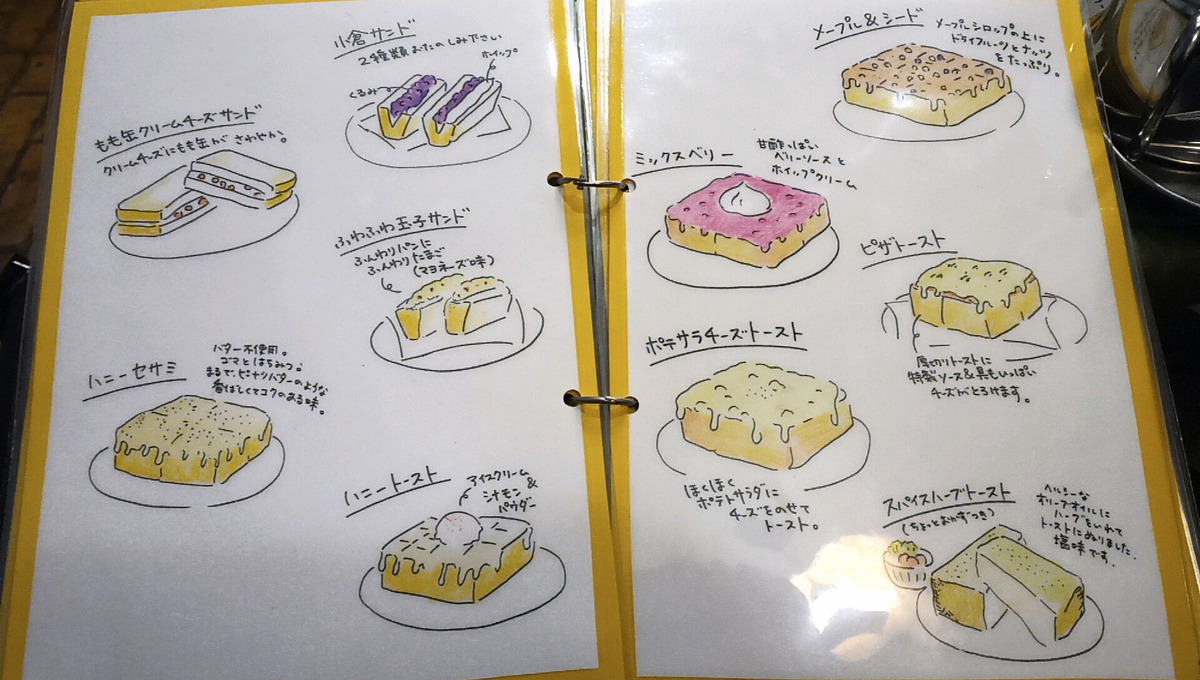 小倉サンド
2種類おたのしみ下さい
ホイップ
くるみ
もも缶クリームチーズサンド
クリームチーズにもも缶がさわやか。
ふわふわ玉子サンド
ふんわりパンに
ふんわりたまご
(マヨネーズ味)
ハニーセサミ
バター不使用。
ゴマとはちみつ。
まるで、ピーナツバターのような
香ばしくてコクのある味。
ハニートースト
アイスクリーム
&
シナモン
パウダー
メープル&シード
メープルシロップの上に
ドライフルーツとナッツ
をたっぷり。
ミックスベリー
甘酸っぱい
ベリーソースと
ホイップクリーム
ピザトースト
厚切りトーストに
特製ソース&具もいっぱい
チーズがとろけます。
ポテサラチーズトースト
ほくほく
ポテトサラダに
チーズをのせて
トースト。
スパイスハーブトースト
(ちょっとおかずつき)
ヘルシーな
オリーブオイルに
ハーブをいれて
トーストにぬりました。
塩味です。